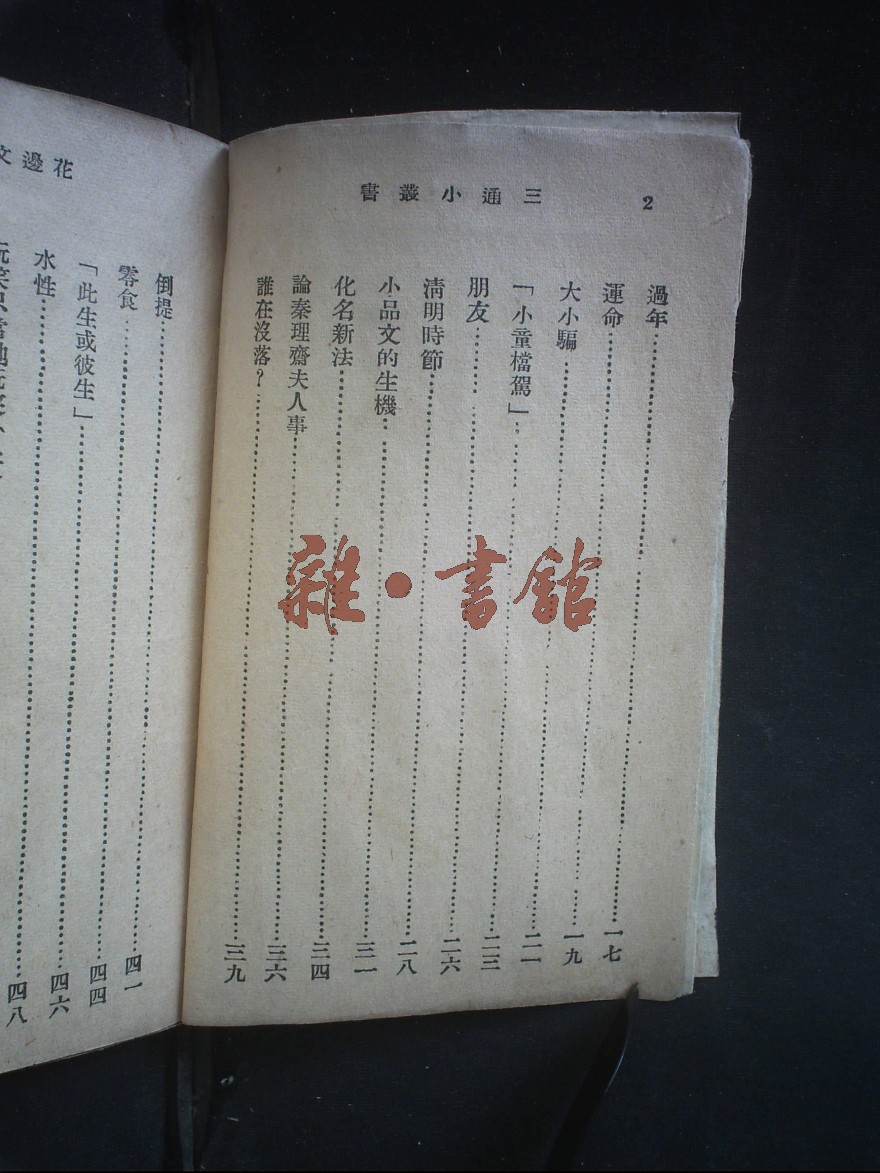 2
三通小叢書
過年……一七
運命……一九
大小騙……二一
「小童檔駕」……二三
朋友……二六
清明時節……二八
小品文的生機……三一
化名新法……三四
論秦理齋夫人事……三六
誰在沒落?……三九
花邊文
倒提……四一
零食……四四
「此生或彼生」……四六
水性……四八
雜・書館